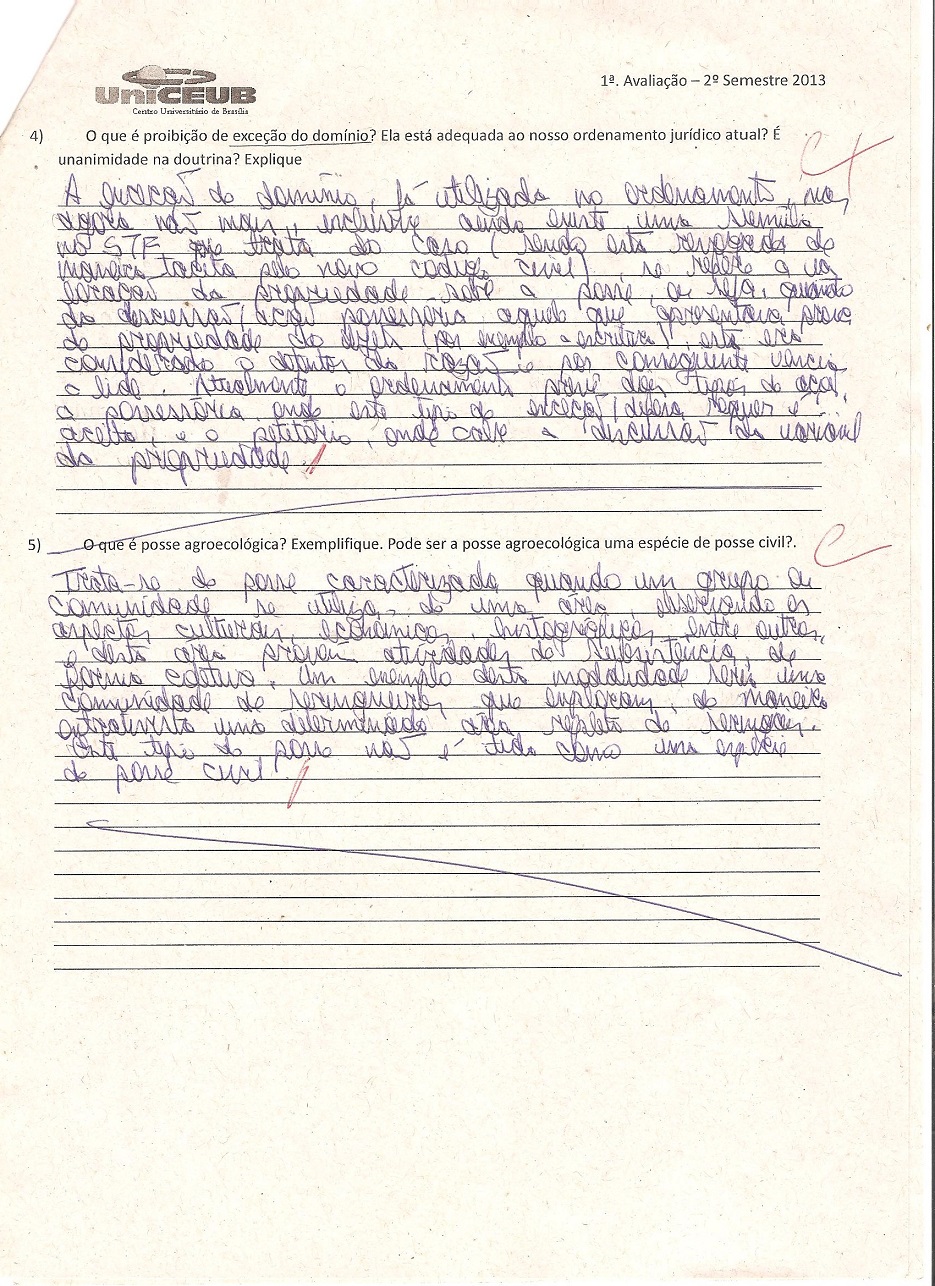 UniCEUB
Centro Universitário de Brasília
1ª. Avaliação – 2º Semestre 2013
4) O que é proibição de exceção do domínio? Ela está adequada ao nosso ordenamento jurídico atual? É
unanimidade na doutrina? Explique
C+
A exceção do domínio, já utilizada no ordenamento, mas
agora não mais, inclusive ainda existe uma súmula
no STF que trata do caso (sendo está revogada de
maneira tacita pelo novo codigo civil), se refere a
da propriedade sobre a posse, ou seja, quando
da discussão/ação possessoria aquele que apresentava prova
de propriedade do objeto (por exemplo a escritura), esta era
considerado o detentor da razão e por consequente vencia
a lide. Atualmente o ordenamento prevê dois tipos de ação,
a possessória onde este tipo de exceção/defesa sequer é
aceito, e o petitório, onde cabe a discussão da
da propriedade.
5) O que é posse agroecológica? Exemplifique. Pode ser a posse agroecológica uma espécie de posse civil?.
C
Trata-se de posse caracterizada quando um grupo ou
comunidade se utiliza de uma área, observando os
aspectos culturais, econômicos, entre outros,
e desta área provém atividades de subsistência, de
forma coletiva. Um exemplo desta modalidade seria uma
comunidade de seringueiros, que exploram, de maneira
extrativista uma determinada área repleta de seringas.
Este tipo de posse não é tida como uma espécie
de posse civil.